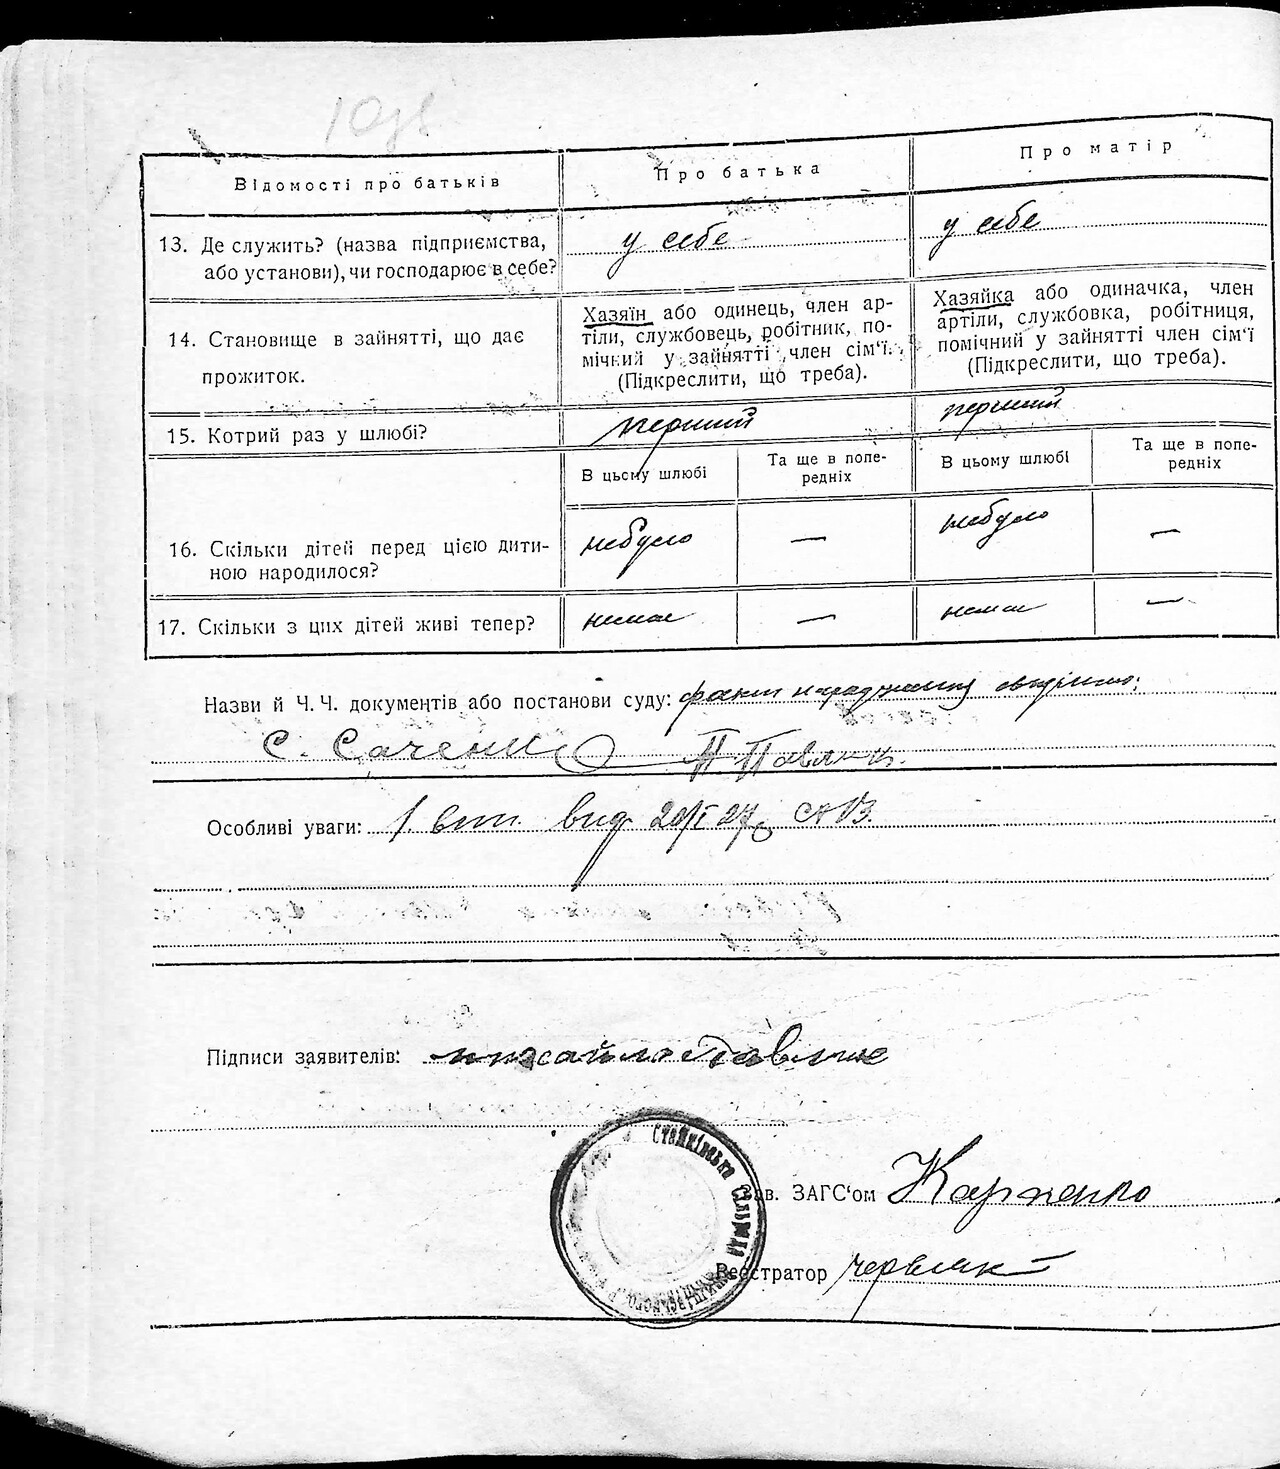 10зв
Відомості про батьків
Про батька
Про матір
13. Де служить? (назва підприємства, або установи), чи господарює в себе?
у себе
у себе
14. Становище в зайнятті, що дає прожиток.
Хазяїн або одинець, член ар-
тіли, службовець, робітник, по-
мічний у зайнятті член сім‘ї.
(Підкреслити, що треба).
Хазяйка або одиначка, член
артіли, службовка, робітниця,
помічний у зайнятті член сім‘ї
(Підкреслити, що треба).
15. Котрий раз у шлюбі?
перший
перший
В цьому шлюбі
Та ще в попе-
редніх
В цьому шлюбі
Та ще в попе-
редніх
16. Скільки дітей перед цією дити-
ною народилося?
небуло
—
небуло
—
17. Скільки з цих дітей живі тепер?
немає
—
немає
—
Назви й Ч. Ч. документів або постанови суду: факт народження свідчить:
С. Саченко П Павлик.
Особливі уваги: 1. вип. вид 20/I 27
Підписи заявителів: михайло Павлик
Стайківська сільрада
Зав. ЗАГС‘ом Карпенко
Реєстратор Червяк